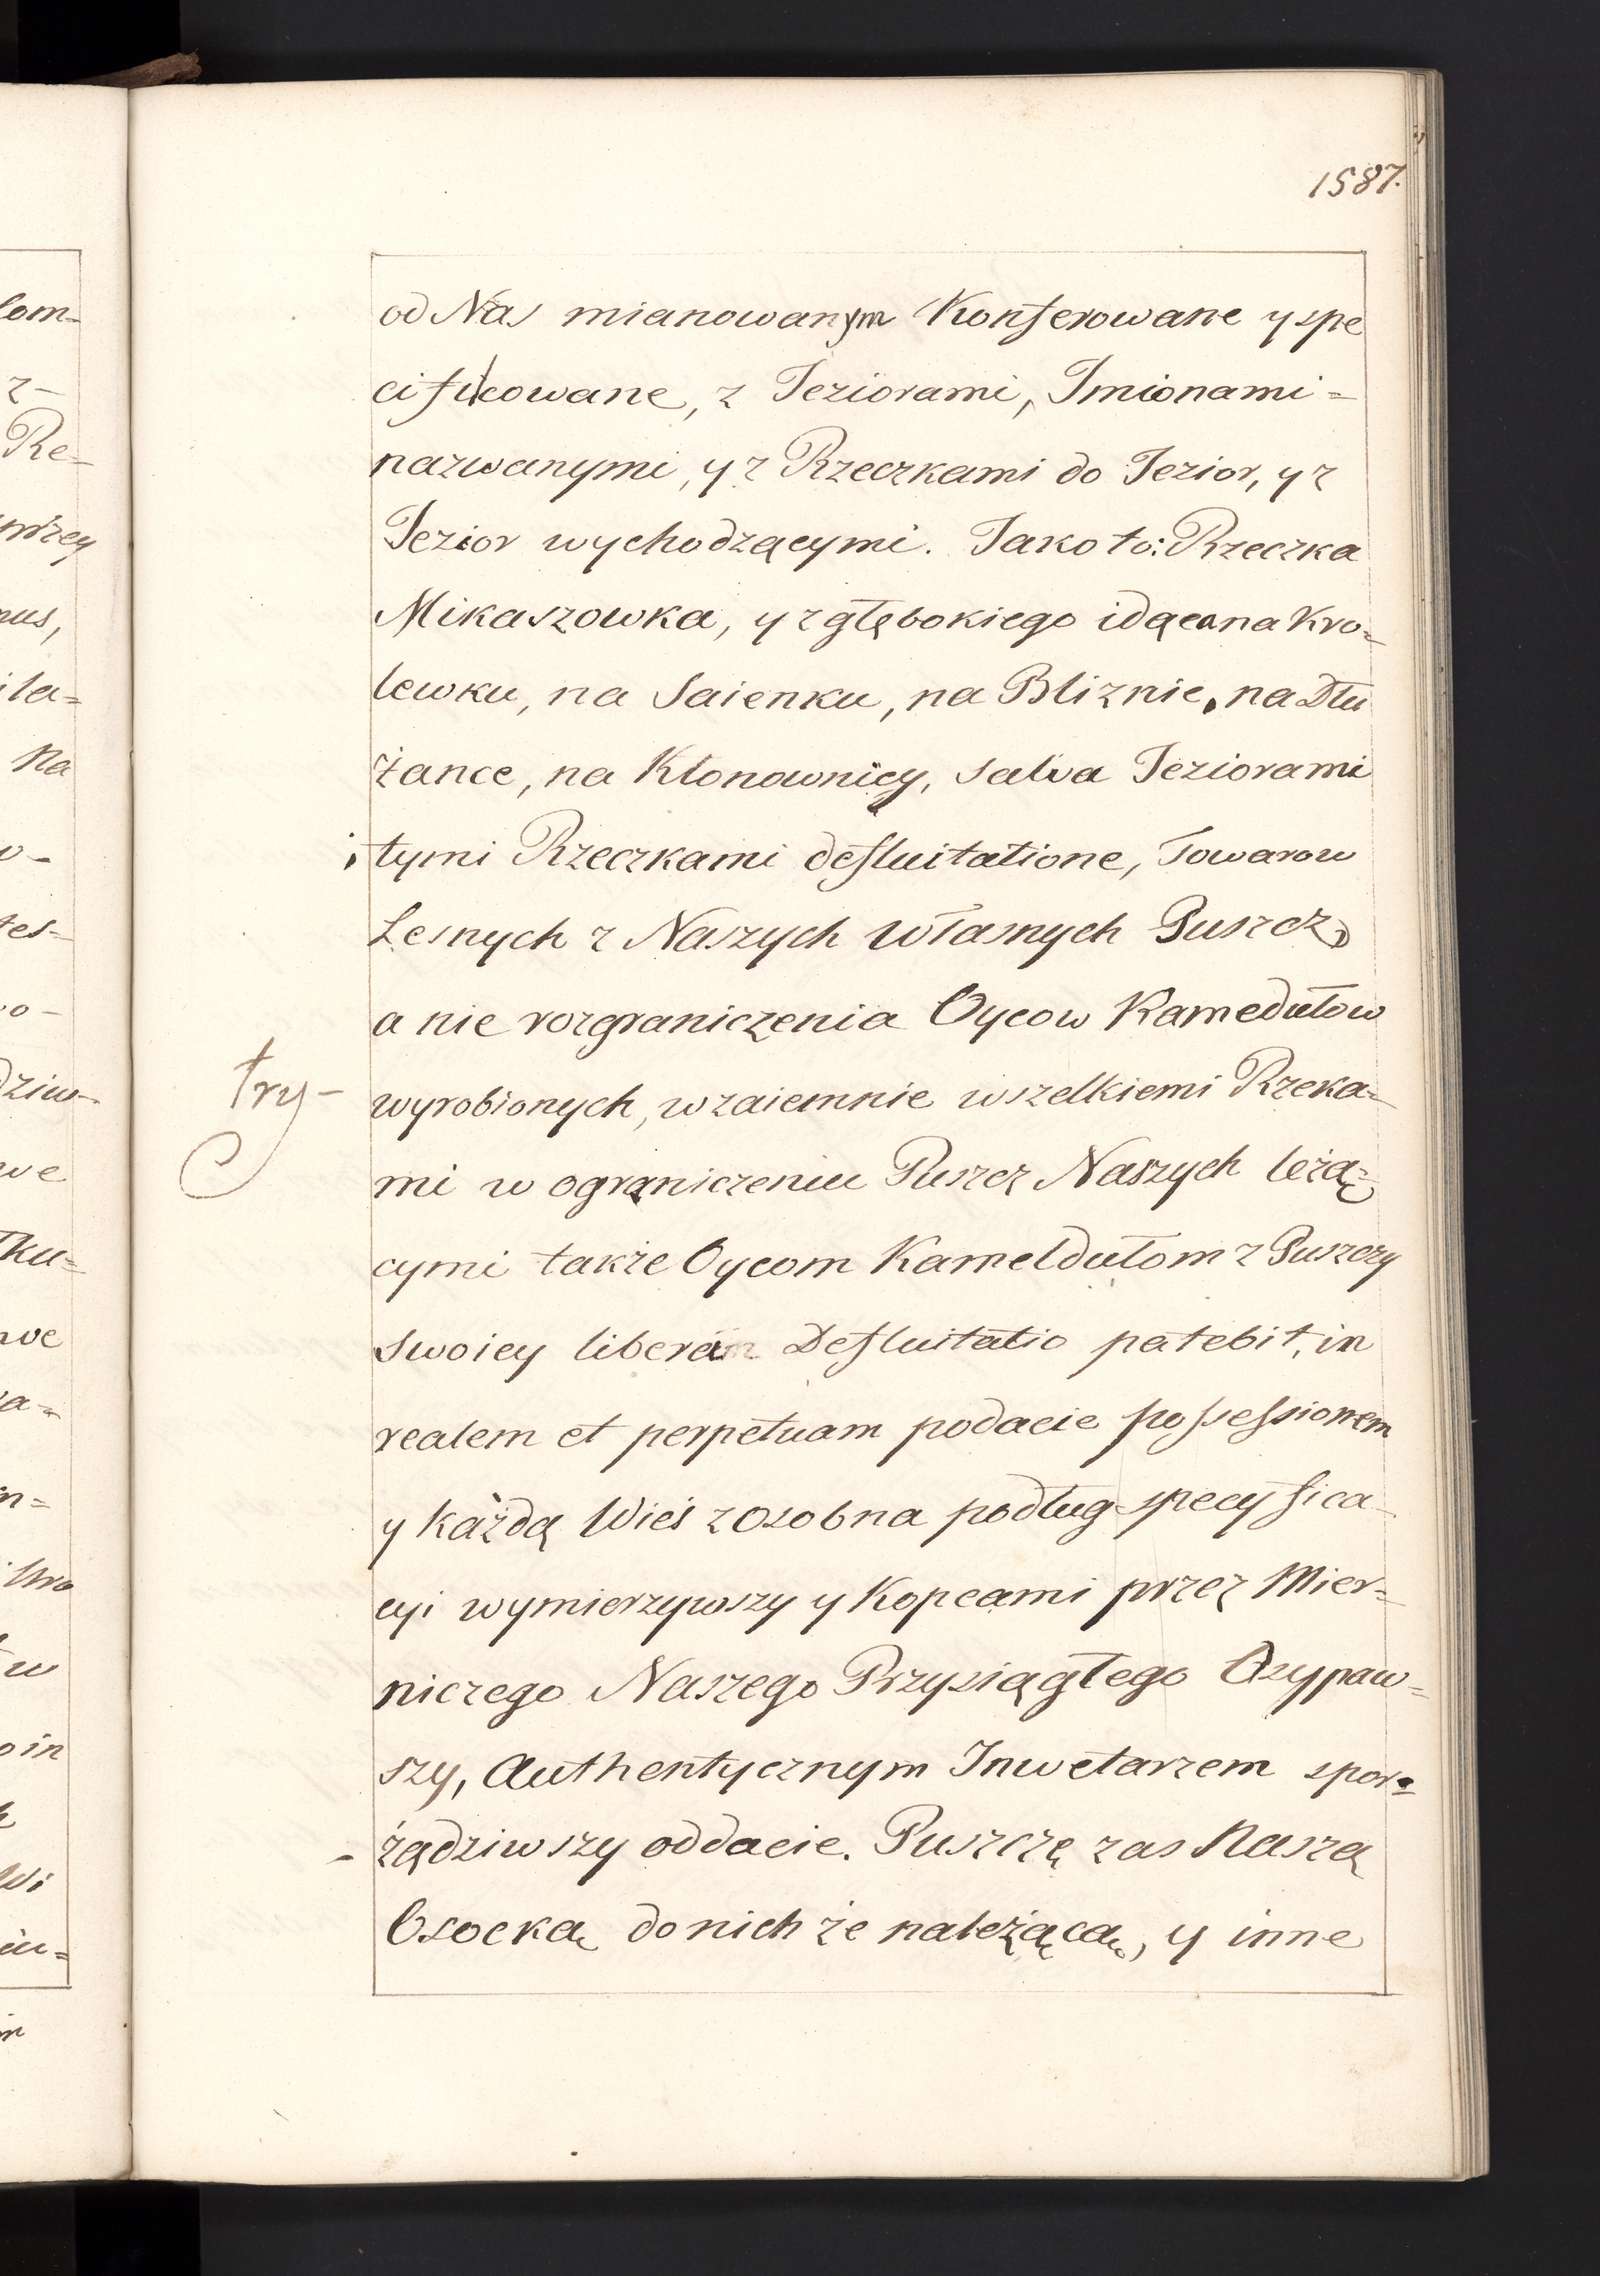 1587.
od Nas mianowanym Konferowane y spe
cifikowane, z Jeziorami, Jmionami=
nazwanymi, y z Rzeczkami do Jezior, y z
Jezior wychodzącymi. Jako to: Rzeczka
Mikaszowka, y z głębokiego idąca na Kro=
lewku, na Saienku, na Bliznie, na Dłu
żance, na Kłonownicy, salva Jeziorami
i tymi Rzeczkami defluitatione, Towarow
Lesnych z Naszych własnych Puszcz,
a nie rozgraniczenia Oycow Kamedułow
try-
wyrobionych, wzaiemnie wszelkiemi Rzeka=
mi w ograniczeniu Puszcz Naszych leżą=
cymi także Oycom Kameldułom z Puszczy
swoiey libera Defluitatio patebit, in
realem et perpetuam podacie possessionem
y każdą Wieś z osobna podług specyfica-
cyi wymierzywszy y Kopcami przez Mier=
niczego Naszego Przysiągłego Osypaw=
szy, Authentycznym Inwetarzem spor=
-ządziwszy oddacie. Puszczę zas Naszą
Osocką do nich że należącą, y inne
lom-
z-
Re-
nus,
Na
tes-
o-
dziw-
we
ku=
we
a=
n=
w
in